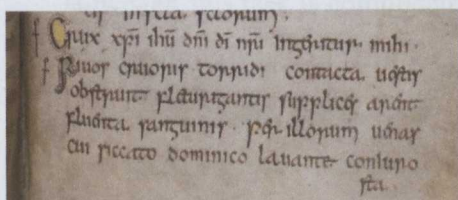 in fecta sctorum .
Crux xp̄i ihū dn̄i dī nr̄ui ingeritur mihi .
Riuos cruoris torridi contacta uestis
obstruit fletu rigantis supplicis arent
fluenta sanguinis . per illorum uenas
cui siccato dominico lauante coniuro
sta